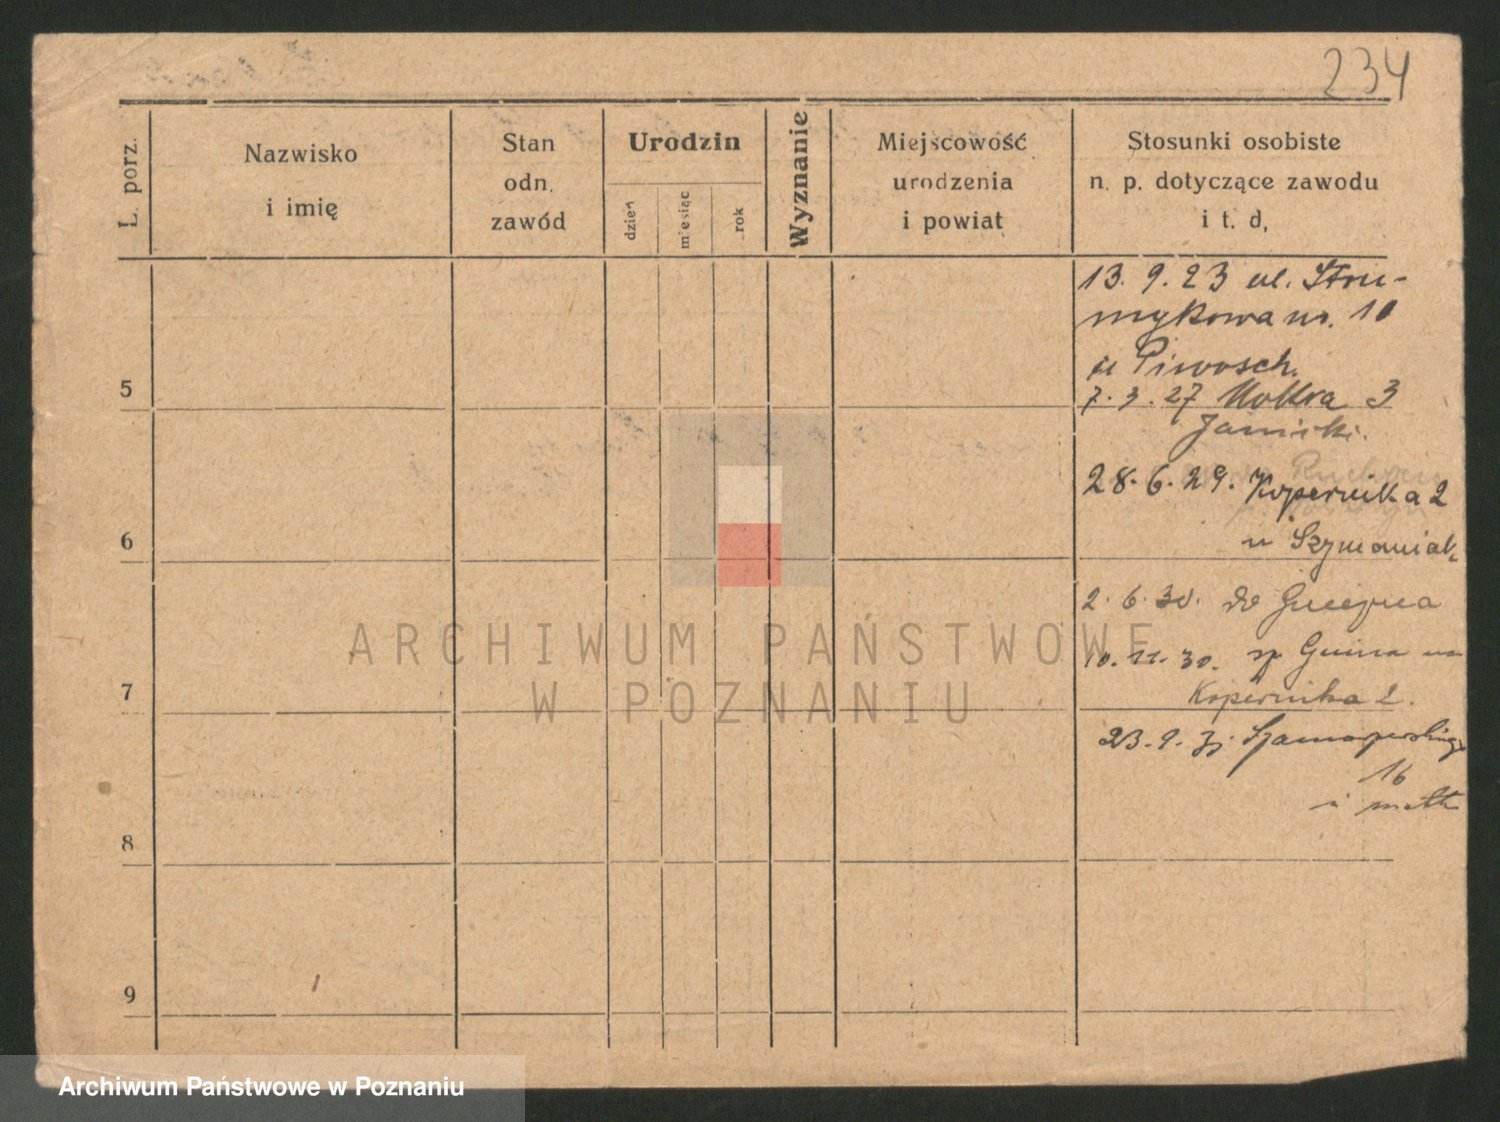 234
L. porz.
Nazwisko
i imię
Stan
odn.
zawód
Urodzin
dzień
miesiąc
rok
Wyznanie
Miejscowość
urodzenia
i powiat
Stosunki osobiste
n. p. dotyczące zawodu
i t. d,
13. 9. 23 ul. Stru-
mykowa nr. 10
u Piwosch.
5
7. 3. 27 Mokra 3
28. 6. 29. Kopernika 2
6
u Szymaniak
2. 6. 30. do Gniezna
10. 11. 30. Gniezna na
7
Kopernika 2.
23. 9.
16
8
9
ARCHIWUM PAŃSTWOWE
W POZNANIU
Archiwum Państwowe w Poznaniu